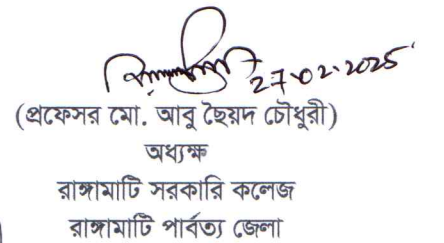 27.02.2025
(প্রফেসর মো. আবু ছৈয়দ চৌধুরী)
অধ্যক্ষ
রাঙ্গামাটি সরকারি কলেজ
রাঙ্গামাটি পার্বত্য জেলা